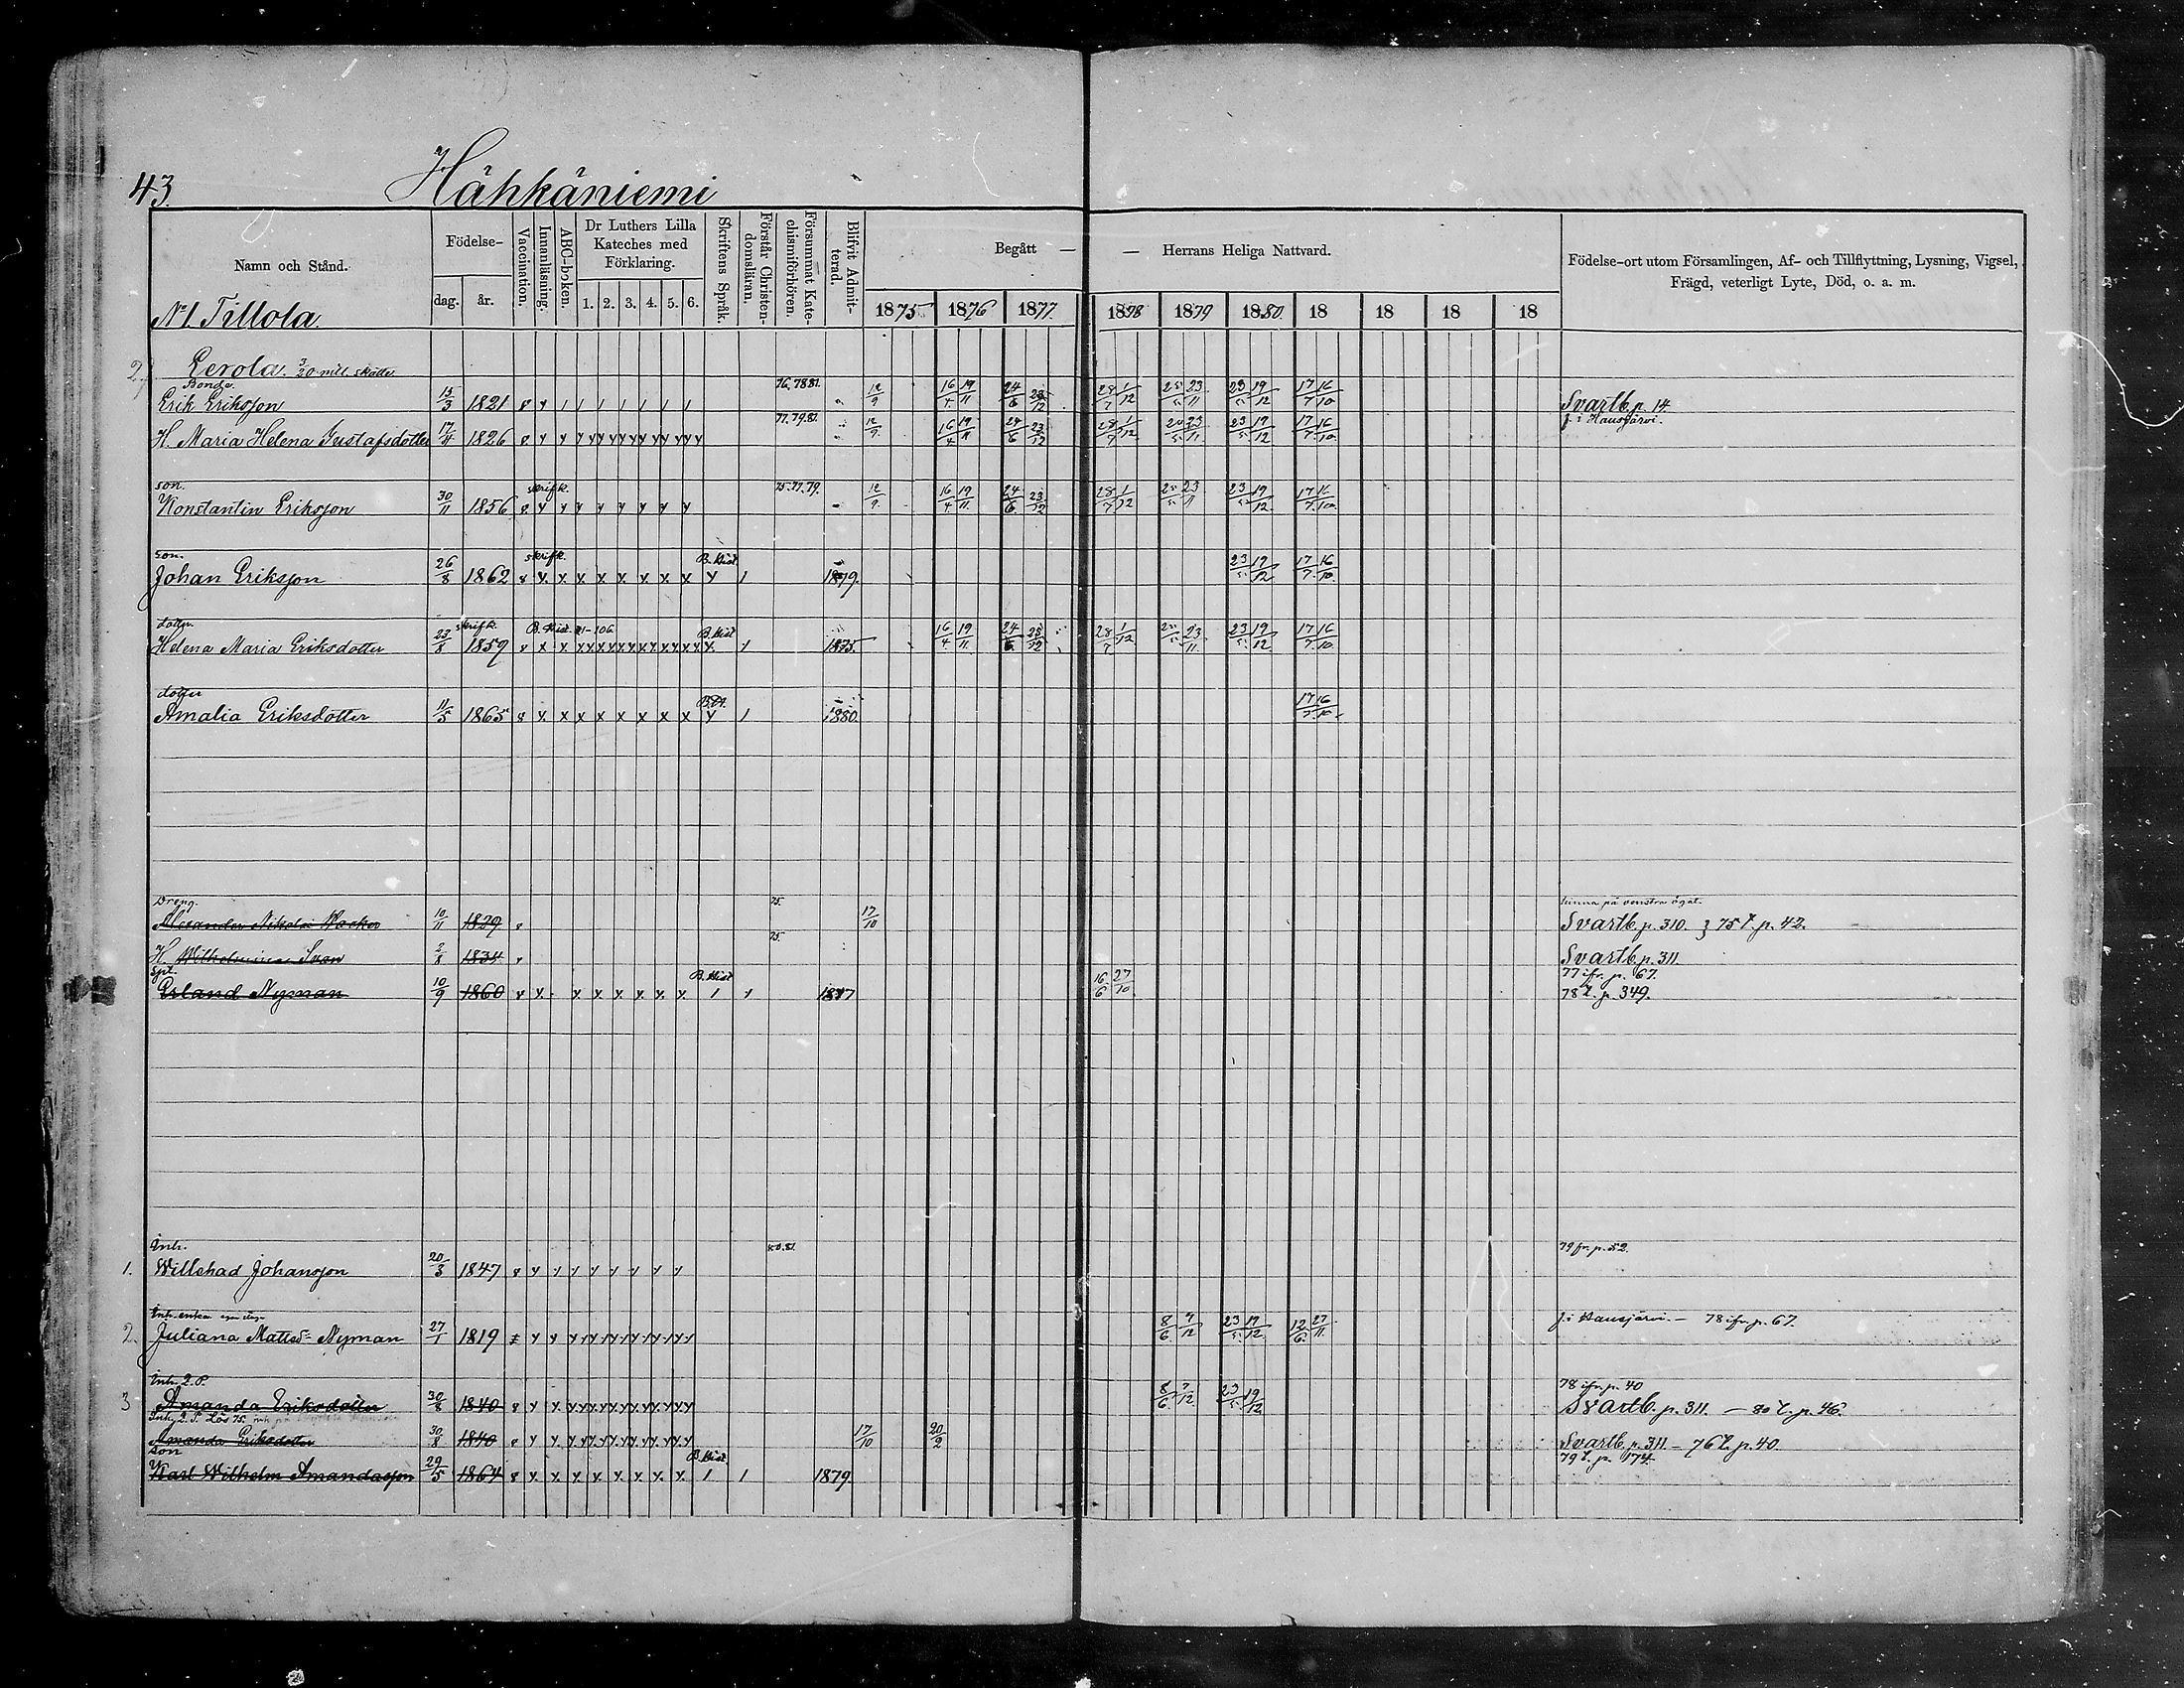 43.
Hähkäniemi
Namn och Stånd.
Födelse-
dag. år.
Vaccination.
Innanläsning.
ABC-boken.
Dr Luthers Lilla Kateches med Förklaring.
1. 2. 3. 4. 5. 6.
Skriftens Språk.
Förstår Christendomsläran.
Försummat Katechismiförhören.
Blifvit Admitterad.
Begått — — Herrans Heliga Nattvard.
1875 1876 1877 1878 1879 1880 18 18 18 18
Födelse-ort utom Församlingen, Af- och Tillflyttning, Lysning, Vigsel, Frägd, veterligt Lyte, Död, o. a. m.
N1. Tillola.
2. Perola. 3/20 mtl. skatte
Bonde. 76.78 81.
Erik Eriksson 15/3 1821 12/9 16/4 19/11 24/6 23/12 28/7 1/12 25/5 23/11 23/5 19/12 17/7 16/10 Svartb. p. 14.
77.79.81. f. i Hausjärvi.
H. Maria Helena Gustafsdotter 17/4 1826 12/9 16/4 19/11 24/6 23/12 28/7 1/12 25/5 23/11 23/5 19/12 17/7 16/10
son. skrifk. 75.77.79.
Konstantin Eriksson 30/11 1856 12/9 16/4 19/11 24/6 23/12 28/7 1/12 25/5 23/11 23/5 19/12 17/7 16/10
son. skrifk. B. Hist.
Johan Eriksson 26/8 1862 1879. 23/5 19/12 17/7 16/10
dotter skrifk. B. Hist. 1-106 B. Hist
Helena Maria Eriksdotter 23/8 1859 1875. 16/4 19/11 24/6 23/12 28/7 1/12 25/5 23/11 23/5 19/12 17/7 16/10
dotter
Amalia Eriksdotter 11/5 1865 1880. 17/7 16/10
Dreng. 75. hinna på venstra ögat.
Alexander Nikolai 10/11 1829 17/10 Svartb. p. 310. 75 t. p. 42.
75.
H. Wilhelmina Svan 2/8 1834 Svartb. p. 311.
B. Hist 77 ifr. p. 67.
Erland Nyman 10/9 1860 1877 16/6 27/10 78 t. p. 349.
Inh. 80.81. 79 fr. p. 52.
1. Willehad Johansson 20/3 1847
Inh. enka
2. Juliana Mattsdr Nyman 27/1 1819 8/6 7/12 23/5 19/12 12/6 27/11 f. i Hausjärvi. — 78 ifr. p. 67.
Inh. 2. P. 78 ifr. p. 40
3 Amanda Eriksdotter 30/8 1840 8/6 7/12 23/5 19/12 Svartb. p. 311. — 80 t. p. 46.
Inh. 2. P. Lös 75.
Amanda Eriksdotter 30/8 1840 17/10 20/2 Svartb. p. 311 — 76 t. p. 40.
son B. Hist 79 t. p. 174.
Karl Wilhelm Amandasson 29/5 1864 1879.